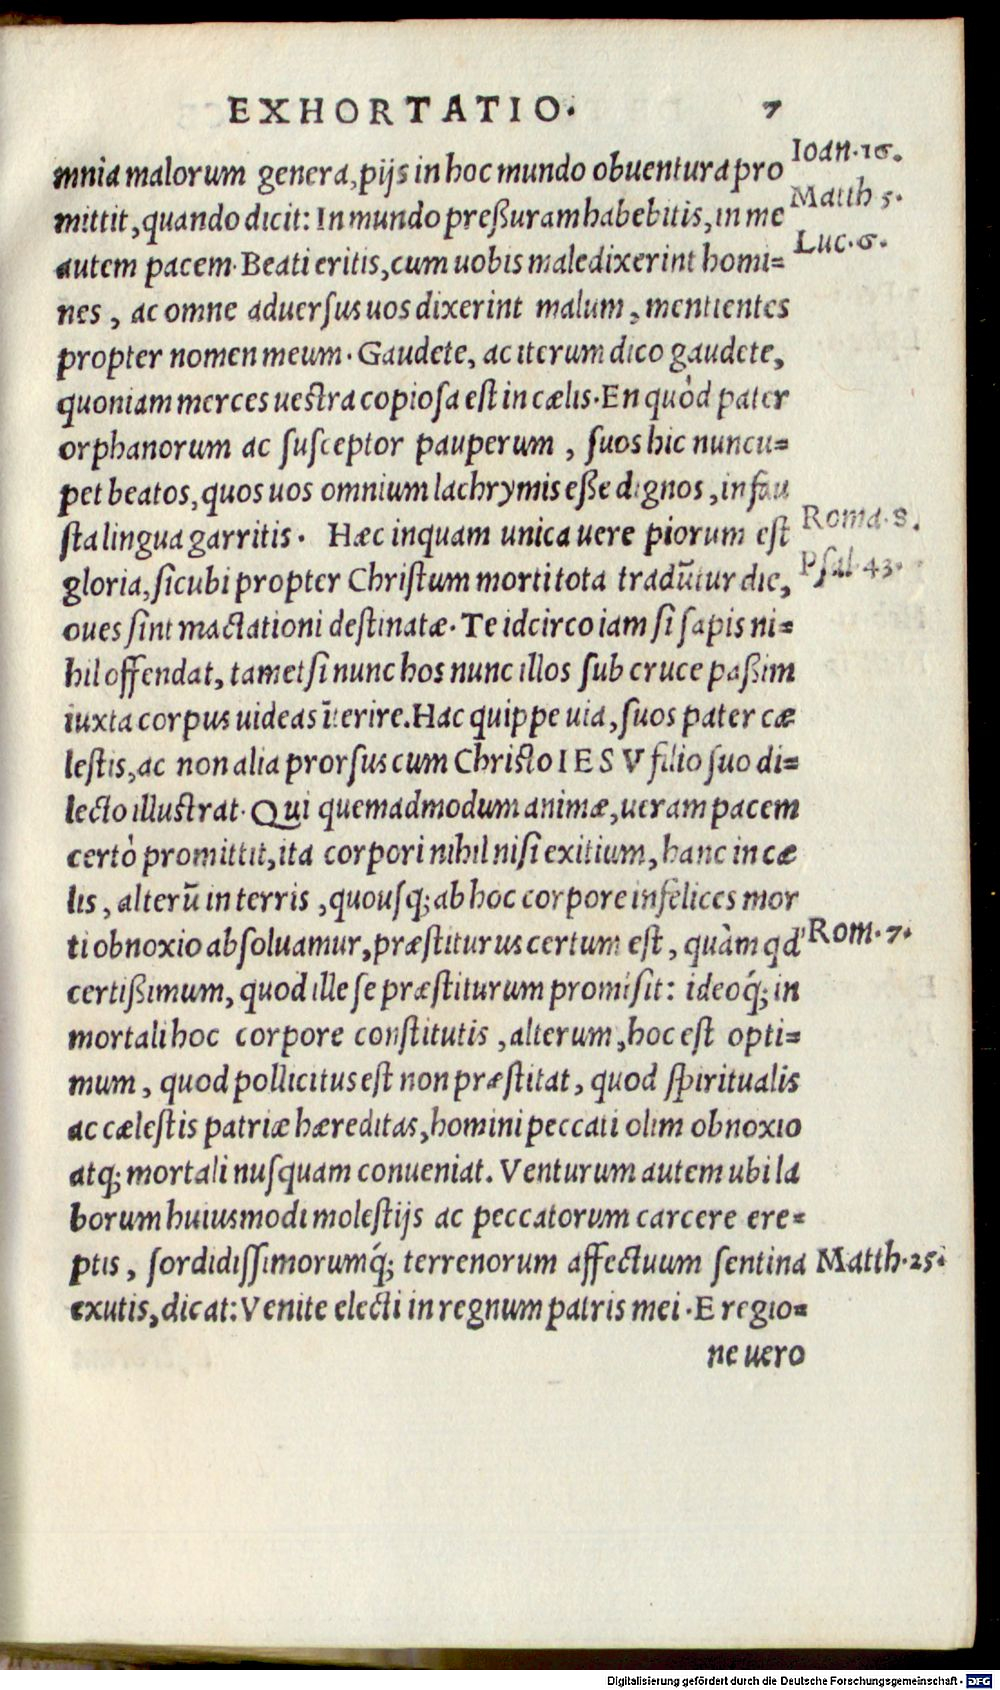 EXHORTATIO. 7
mnia malorum genera, pijs in hoc mundo obuentura pro
Ioan. 16.
mittit, quando dicit: In mundo preßuram habebitis, in me
Matth 5.
autem pacem. Beati eritis, cum uobis maledixerint homi=
Luc. 6.
nes, ac omne aduerſus uos dixerint malum, mentientes
propter nomen meum. Gaudete, ac iterum dico gaudete,
quoniam merces ueſtra copioſa eſt in cælis. En quòd pater
orphanorum ac ſuſceptor pauperum, ſuos hic nuncu=
pet beatos, quos uos omnium lachrymis eße dignos, infau
ſta lingua garritis. Hæc inquam unica uere piorum eſt
Roma. 8.
gloria, ſicubi propter Chriſtum morti tota tradũtur die,
Pſal. 43.
oues ſint mactationi deſtinatæ. Te idcirco iam ſi ſapis ni=
hil offendat, tametſi nunc hos nunc illos ſub cruce paßim
iuxta corpus uideas ĩterire. Hac quippe uia, ſuos pater cæ
leſtis, ac non alia prorſus cum Chriſto IESV filio ſuo di=
lecto illuſtrat. Qui quemadmodum animæ, ueram pacem
certò promittit, ita corpori nihil niſi exitium, hanc in cæ
lis, alterũ in terris, quouſq; ab hoc corpore infelices mor
ti obnoxio abſoluamur, præſtiturus certum eſt, quàm qd'
Rom. 7.
certißimum, quod ille ſe præſtiturum promiſit: ideoq́; in
mortali hoc corpore conſtitutis, alterum, hoc eſt opti=
mum, quod pollicitus eſt non præſtitat, quod ſpiritualis
ac cæleſtis patriæ hæreditas, homini peccati olim obnoxio
atq; mortali nuſquam conueniat. Venturum autem ubi la
borum huiusmodi moleſtijs ac peccatorum carcere ere=
ptis, ſordidiſſimorumq́; terrenorum affectuum ſentina
Matth. 25.
exutis, dicat: Venite electi in regnum patris mei. E regio=
ne uero
Digitalisierung gefördert durch die Deutsche Forschungsgemeinschaft - DFG